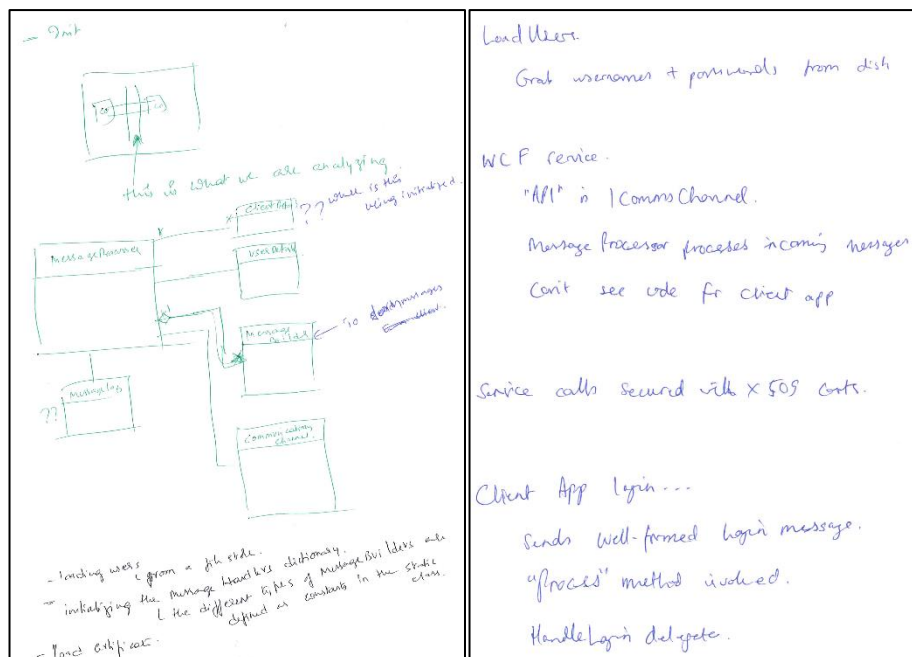 - Init
this is what we are analyzing
?? where is this being initialized.
Message Processor
User Detail
Message Builder
To
Message Log
??
Communication Channel.
- loading users from a file store.
- initializing the Message Handlers dictionary.
the different types of MessageBuilders are
defined as constants in the static
class.
- load certificate.
Load Users.
Grab usernames + passwords from disk
WCF service.
"API" is ICommsChannel.
Message Processor processes incoming messages
Can't see code for client app
Service calls secured with X509 certs.
Client App login...
Sends well-formed login message.
"Process" method invoked.
HandleLogin delegate.